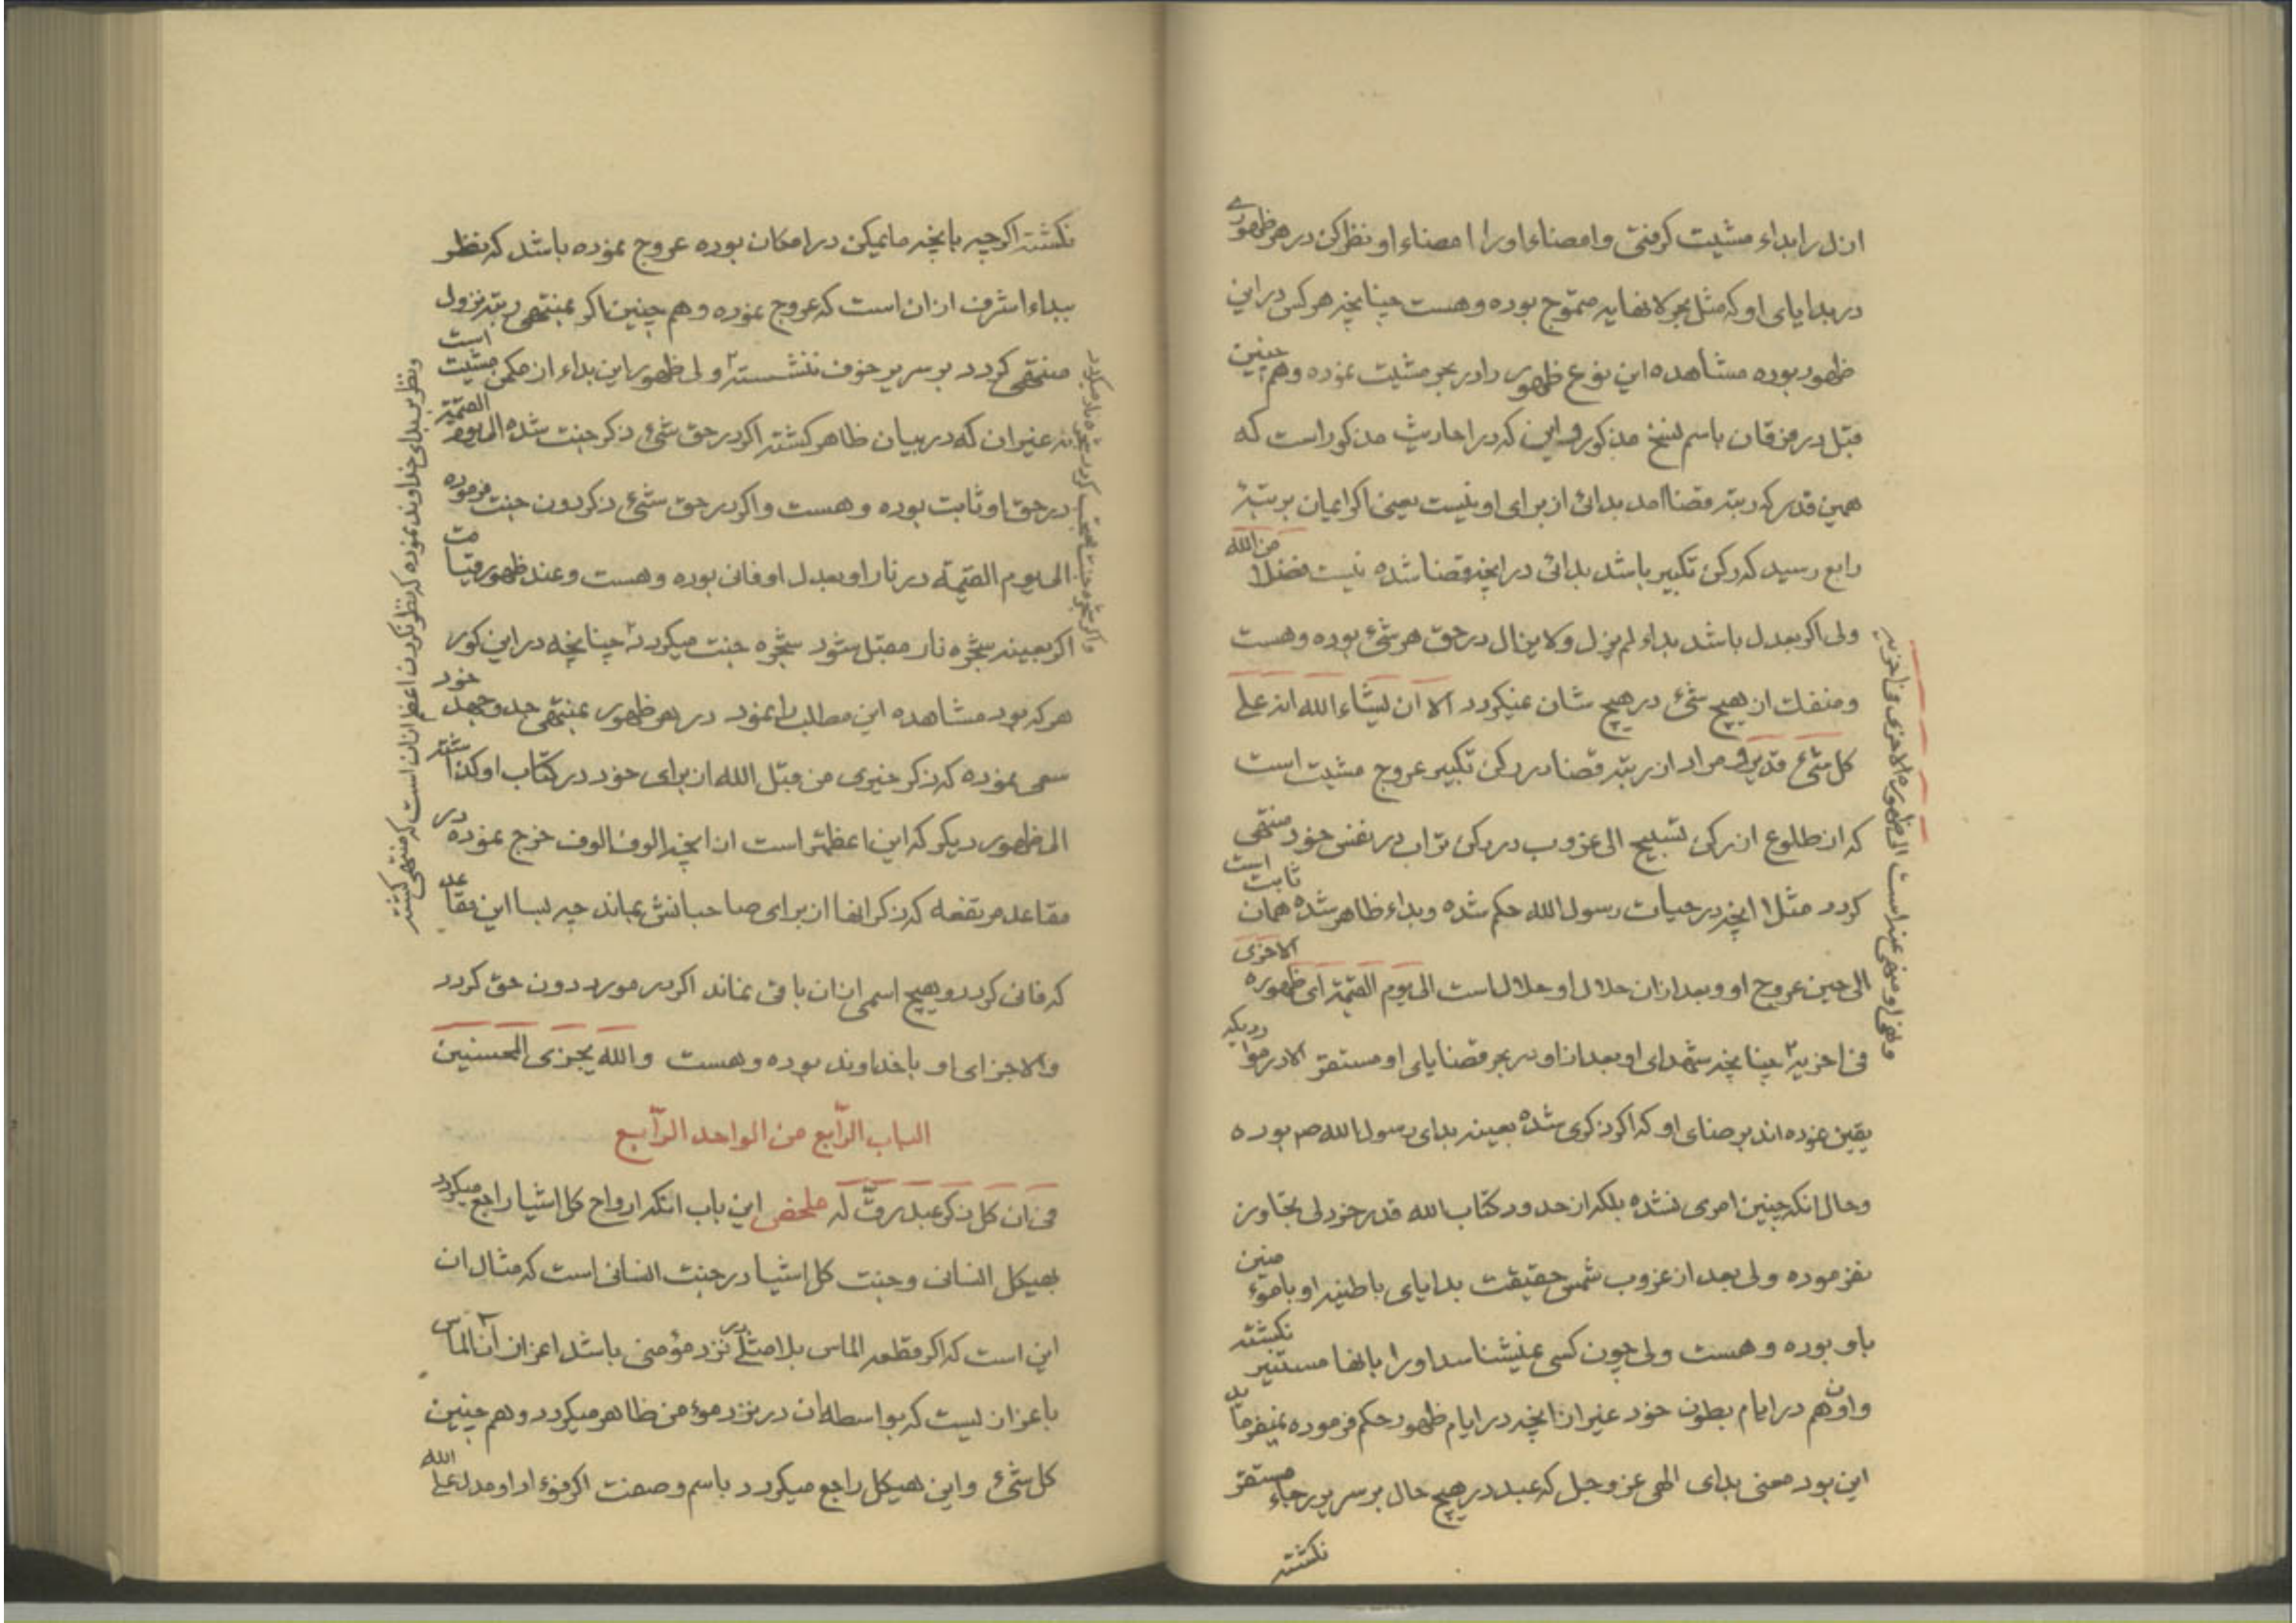 ازل را بداء مشیت گرفتی و امضاء او را امضاء او نظر کن در هر ظهوری
در بدایای او که مثل بحر لانهایه متموج بوده و هست چنانچه هرکس در این
ظهور بوده مشاهده این نوع ظهور را در بحر مشیت نموده و هم چنین
قبل در فرقان باسم نسخ مذکور و این که در احادیث مذکور است که
همین قدر که رتبه قضا امد بدائی از برای او نیست یعنی اکر ایمان برتبهٔ
رابع رسید که رکن تکبیر باشد بدائی در انچه قضا شده نیست فضلا من الله
ولی اکر بعدل باشد بداء لم یزل ولا یزال در حق هر شیء بوده و هست
و منفک از هیچ شیء در هیچ شان نمیکردد الا ان یشاء الله انه علی
کل شیء قدیر و مراد از رتبه قضا در رکن تکبیر عروج مشیت است
که از طلوع از رکن تسبیح الی غروب در رکن تراب در نفس خود منتهی
کردد مثلا انچه در حیات رسول الله حکم شده و بداء ظاهر شده همان ثابت است
الی حین عروج او و بعد از ان حلال او حلال است الی یوم القیمة ای ظهوره الاخری
فی اخریه چنانچه شهدای او بعد از او در بحر قضایای او مستقر الا در مواردیکه
یقین نموده اند برضای او که اکر ذکری شده بعینه بدای رسول الله ص بوده
و حال انکه چنین امری نشده بلکه از حدود کتاب الله قدر خردلی تجاوز
نفرموده ولی بعد از غروب شمس حقیقت بدایای باطنیه او با مؤمنین
باو بوده و هست ولی چون کسی نمیشناسد او را بانها مستنیر نکشته
و اون هم در ایام بطون خود غیر از انچه در ایام ظهور حکم فرموده نمیفرماید
این بود معنی بدای الهی عز و جل که عبد در هیچ حال بر سریر رجاء مستقر
نکشته
و نهی او منهی عنه است الی ظهوره الاخری فی اخریه
نکشته اکرچه بانچه مایمکن در امکان بوده عروج نموده باشد که نظر
ببداء اشرف از ان است که عروج نموده و هم چنین اکر بمنتهی رتبه نزول
منتهی کردد بر سریر خوف ننشسته ولی ظهور این بداء از مکمن مشیت است
نه غیر ان که در بیان ظاهر کشته اکر در حق شیء ذکر جنت شده الی یوم القیمة
در حق او ثابت بوده و هست و اکر در حق شیء ذکر دون جنت فرموده
الی یوم القیمة در نار او بعدل او فانی بوده و هست و عند ظهور قیامت
اکر بعینه شجره نار مقبل شود شجره جنت میکردد چنانچه در این کور
هر که بود مشاهده این مطلب را نمود در هر ظهور بمنتهی جد و جهد خود
سعی نموده که ذکر خیری من قبل الله از برای خود در کتاب او کذاشته
الی ظهور دیکر که این اعظمتر است از انچه الوف الوف خرج نموده در
مقاعد مرتفعه که ذکر انها از برای صاحبانش بماند چه بسا این مقاعد
که فانی کردد و هیچ اسمی از ان باقی نماند اکر در مورد دون حق کردد
والا جزای او با خداوند بوده و هست والله یجزی المحسنین
الباب الرّابع من الواحد الرّابع
فی ان کل ذکر عبد رقّ له ملخص این باب انکه ارواح کل اشیا راجع میکردد
بهیکل انسانی و جنت کل اشیا در جنت انسانی است که مثال ان
این است که اکر قطعه الماس بلا مثلی در نزد مؤمنی باشد اعز از آن الماس
باعز ان نیست که بواسطه ان در نزد مؤمن ظاهر میکردد و هم چنین
کل شیء و این هیکل راجع میکردد باسم و صفت اکر فؤاد او مدل علی الله
و نظر ببدای خداوند نموده که نظر نکردن اعظم از ان است که منتهی کشته